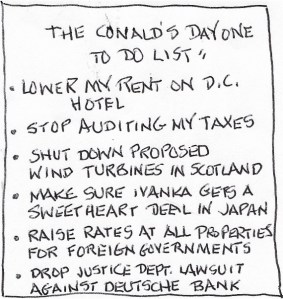 THE CONALD'S DAY ONE
TO DO LIST"
• LOWER MY RENT ON D.C.
HOTEL
• STOP AUDITING MY TAXES
• SHUT DOWN PROPOSED
WIND TURBINES IN SCOTLAND
• MAKE SURE IVANKA GETS A
SWEETHEART DEAL IN JAPAN
• RAISE RATES AT ALL PROPERTIES
FOR FOREIGN GOVERNMENTS
• DROP JUSTICE DEPT. LAWSUIT
AGAINST DEUTSCHE BANK